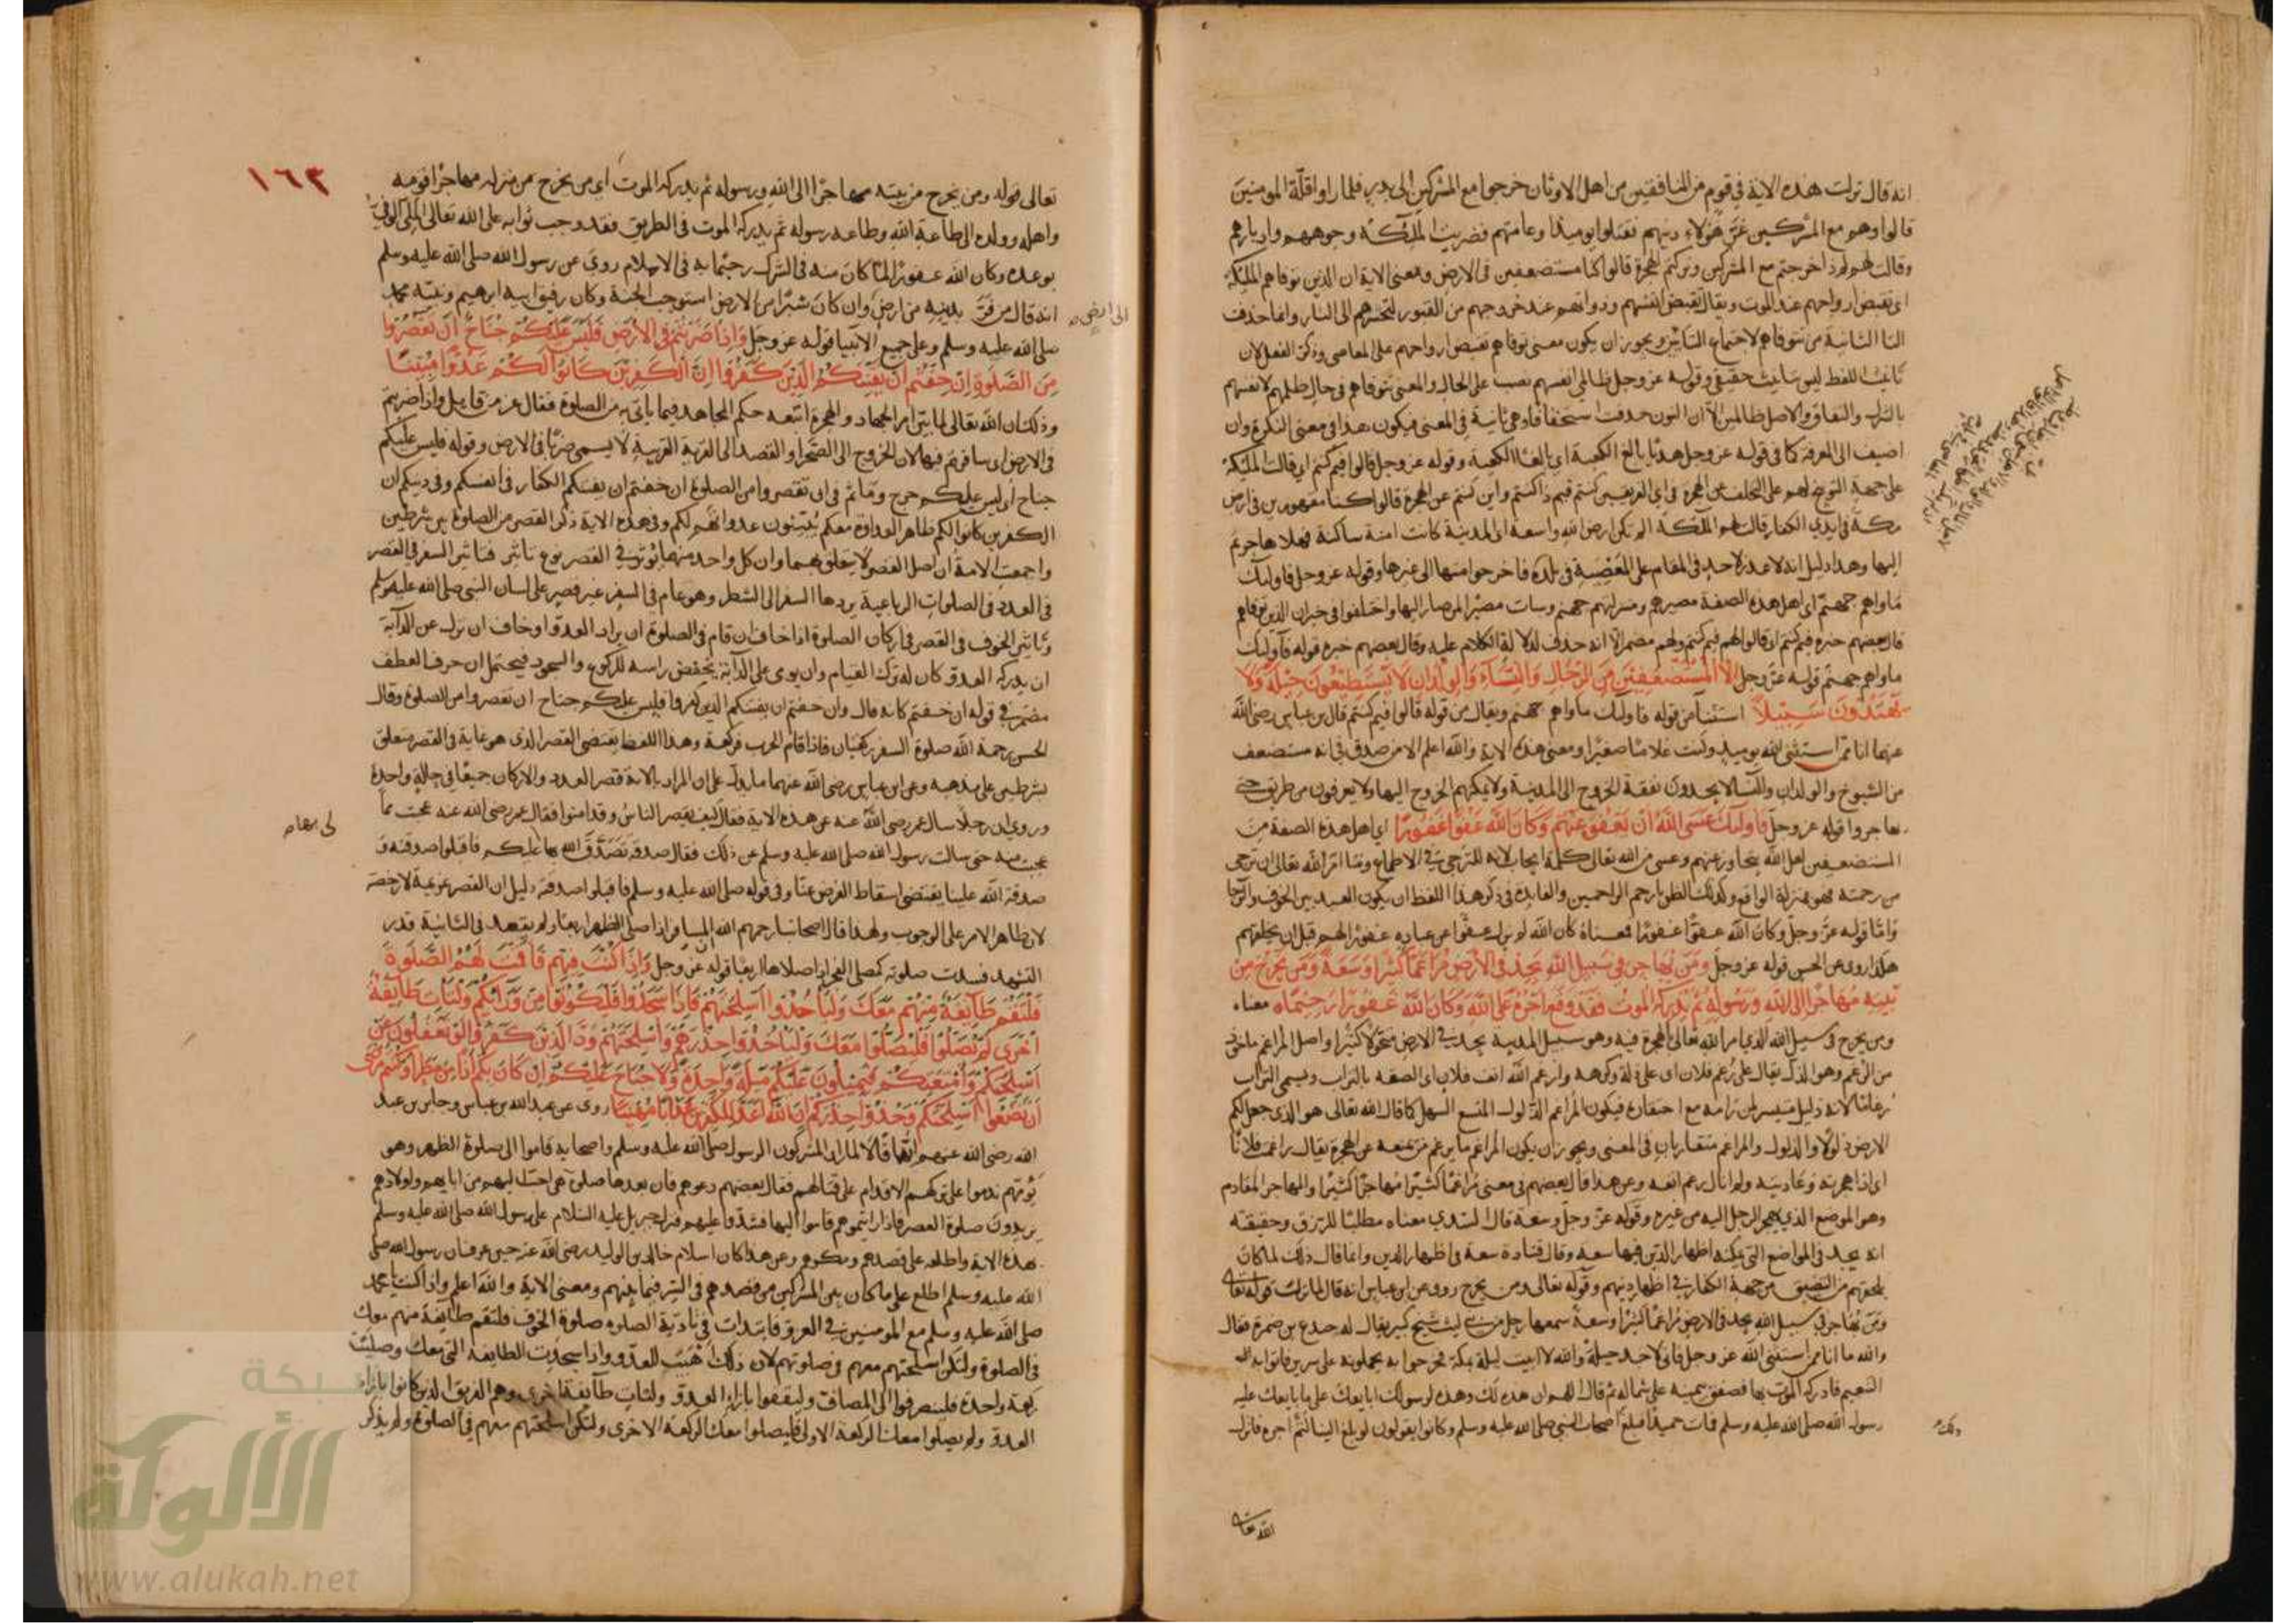 انه قال نزلت هذه الاية في قوم من المنافقين من اهل الاوثان خرجوا مع المشركين الى بدر فلما راوا قلة المومنين
قالوا وهم مع المشركين غر هولاء دينهم فقتلوا يوميذ وعامتهم فضربت الملئكة وجوههم وادبارهم
وقالت لهم لماذا خرجتم مع المشركين وتركتم الهجرة قالوا كنا مستضعفين في الارض ومعنى الاية ان الذين توفاهم الملئكة
اي تقبض ارواحهم عند الموت ويقال تقبض انفسهم وذواتهم عند خروجهم من القبور لتحشرهم الى النار وانما حذفت
التا الثانية من تتوفاهم لاجتماع التائين ويجوز ان يكون معنى توفاهم تقبض ارواحهم على المعاصي وذكر الفعل لان
تانيث اللفظ ليس بتانيث حقيقي وقوله عز وجل ظالمي انفسهم نصب على الحال والمعنى تتوفاهم في حال ظلمهم لانفسهم
بالشرك والنفاق والاصل ظالمين الا ان النون حذفت استخفافا وهي ثانية في المعنى فيكون هذا في معنى النكرة وان
اضيف الى المعرفة كما في قوله عز وجل هديا بالغ الكعبة اي بالغا الكعبة وقوله عز وجل قالوا فيم كنتم اي قالت الملئكة
على جهة التوبيخ لهم على التخلف عن الهجرة في اي الفريقين كنتم فيم ذا كنتم واين كنتم عن الهجرة قالوا كنا مقهورين في ارض
مكة في ايدي الكفار قالت لهم الملئكة الم تكن ارض الله واسعة اي المدينة كانت امنة ساكنة فهلا هاجرتم
اليها وهذا دليل انه لا عذر لاحد في المقام على المعصية في بلده فاخرجوا منها الى غيرها وقوله عز وجل فاوليك
ماواهم جهنم اي اهل هذه الصفة مصيرهم ومنزلهم جهنم وسات مصيرا لمن صار اليها واختلفوا في خبر ان الذين توفاهم
قال بعضهم خبره فيم كنتم اي قالوا لهم فيم كنتم ولهم مضمر الا انه حذف لدلالة الكلام عليه وقال بعضهم خبره قوله فاوليك
ماواهم جهنم قوله عز وجل الا المستضعفين من الرجال والنساء والولدان لا يستطيعون حيلة ولا
يهتدون سبيلا استثنا من قوله فاوليك ماواهم جهنم ويقال من قوله قالوا فيم كنتم قال بن عباس رضي الله
عنهما انا ممن استثنى الله يوميذ وكنت غلاما صغيرا ومعنى هذه الاية والله اعلم الا من صدق في انه مستضعف
من الشيوخ والولدان والنسا لا يجدون نفقة الخروج الى المدينة ولا يمكنهم الخروج اليها ولا يعرفون من طريق حتى
يهاجروا قوله عز وجل فاوليك عسى الله ان يعفو عنهم وكان الله عفوا غفورا اي اهل هذه الصفة من
المستضعفين لعل الله يتجاوز عنهم وعسى من الله تعالى كلمة ايجاب لانه للترجي في الاطماع وما امر الله تعالى ان يرجى
من رحمته فهو بمنزلة الواقع وكذلك الظن بارحم الراحمين والفايدة في ذكر هذا اللفظ ان يكون العبد بين الخوف والرجا
واما قوله عز وجل وكان الله عفوا غفورا فمعناه كان الله لم يزل عفوا عن عباده غفورا لهم قبل ان يخلقهم
هكذا روى عن الحسن قوله عز وجل ومن يهاجر في سبيل الله يجد في الارض مراغما كثيرا وسعة ومن يخرج من
بيته مهاجرا الى الله ورسوله ثم يدركه الموت فقد وقع اجره على الله وكان الله غفورا رحيما معناه
ومن يخرج في سبيل الله الذي امر الله تعالى الهجرة فيه وهو سبيل المدينة يجد في الارض متحولا كثيرا واصل المراغم ماخوذ
من الرغم وهو الذل يقال على رغم فلان اي على ذلة وكرهه وارغم الله انف فلان اي الصقه بالتراب ويسمى التراب
رغاما لانه ذليل متيسر لمن رامه مع احتقاره فيكون المراغم الذلول المتسع السهل كما قال الله تعالى هو الذي جعل لكم
الارض ذلولا والذلول والمراغم متقاربان في المعنى ويجوز ان يكون المراغم ما يرغم من يمنعه عن الهجرة يقال راغمت فلانا
اي اذا هجرته وعاديته ولم ابال رغم انفه وعن هذا قال بعضهم في معنى مراغما كثيرا مهاجرا كثيرا والمهاجر المقادم
وهو الموضع الذي يهجر الرجل اليه من غيره وقوله عز وجل وسعة قال السدي معناه مطلبا للرزق وحقيقته
انه يجد في المواضع التي يمكنه اظهار الدين فيها سعة وقال قتادة سعة في اظهار الدين وانما قال ذلك لما كان
يلحقهم من التضييق من جهة الكفار في اظهار دينهم وقوله تعالى ومن يخرج روى عن ابن عباس انه قال لما نزلت قوله تعالى
ومن يهاجر في سبيل الله يجد في الارض مراغما كثيرا وسعة سمعها رجل من بني ليث شيخ كبير يقال له جندع بن ضمرة فقال
والله ما انا ممن استثنى الله عز وجل فاني لاجد حيلة والله لا ابيت ليلة بمكة فخرجوا به يحملونه على سرير فاتوا به الى
التنعيم فادركه الموت بها فصفق بيمينه على شماله ثم قال اللهم ان هذه لك وهذه لرسولك ابايعك على ما بايعك عليه
رسول الله صلى الله عليه وسلم فمات حميدا فبلغ اصحاب النبي صلى الله عليه وسلم وكانوا يقولون لو بلغ الينا لتم اجره فانزل
ذلك
الله تعالى
١٦٣
تعالى قوله ومن يخرج من بيته مهاجرا الى الله ورسوله ثم يدركه الموت اي من يخرج من منزله مهاجرا قومه
واهله وولده الى طاعة الله وطاعة رسوله ثم يدركه الموت في الطريق فقد وجب ثوابه على الله تعالى الملي الوفي
بوعده وكان الله غفورا لما كان منه في الشرك رحيما به في الاسلام روي عن رسول الله صلى الله عليه وسلم
انه قال من فر بدينه من ارض وان كان شبرا من الارض استوجب الجنة وكان رفيق ابيه ابرهيم ونبيه محمد
الى ارض
صلى الله عليه وسلم وعلى جميع الانبيا قوله عز وجل واذا ضربتم في الارض فليس عليكم جناح ان تقصروا
من الصلوة ان خفتم ان يفتنكم الذين كفروا ان الكفرين كانوا لكم عدوا مبينا
وذلك ان الله تعالى لما بين امر الجهاد والهجرة اتبعه حكم المجاهد فيما ياتي به من الصلوة فقال عز من قايل واذا ضربتم
في الارض اي سافرتم فيها لان الخروج الى الصحرا والقصد الى القرية القريبة لا يسمى ضربا في الارض وقوله فليس عليكم
جناح اي ليس عليكم حرج وماثم في ان تقصروا من الصلوة ان خفتم ان يفتنكم الكفار في انفسكم وفي دينكم ان
الكفرين كانوا لكم ظاهر العداوة معكم يبينون عداوتهم لكم وفي هذه الاية ذكر القصر من الصلوة بين شرطين
واجمعت الامة ان اصل القصر لا يتعلق بهما وان كل واحد منهما يؤثر في القصر نوع تاثير فتاثير السفر في القصر
في العدد في الصلوات الرباعية يردها السفر الى الشطر وهو عام في السفر غير قصر على لسان النبي صلى الله عليه وسلم
وتاثير الخوف في القصر في اركان الصلوة اذا خاف ان قام في الصلوة ان يراه العدو او خاف ان نزل عن الدابة
ان يدركه العدو كان له ترك القيام وان يومى على الدابة يخفض راسه للركوع والسجود فيحتمل ان حرف العطف
مضمر في قوله ان خفتم كانه قال وان خفتم ان يفتنكم الذين كفروا فليس عليكم جناح ان تقصروا من الصلوة وقال
الحسن رحمة الله صلوة السفر ركعتان فاذا قام الحرب فركعة وهذا اللفظ يقتضي القصر الذي هو غاية في القصر متعلق
بشرطين على مذهبه وعن ابن عباس رضي الله عنهما ما يدل على ان المراد بالاية قصر العدد والاركان جميعا في حالة واحدة
وروي ان رجلا سال عمر رضي الله عنه عن هذه الاية فقال كيف يقصر الناس وقد امنوا فقال عمر رضي الله عنه عجبت مما
عجبت منه حتى سالت رسول الله صلى الله عليه وسلم عن ذلك فقال صدقة تصدق الله بها عليكم فاقبلوا صدقته و
صدقة الله علينا يقتضي اسقاط الفرض عنا وفي قوله صلى الله عليه وسلم فاقبلوا صدقته دليل ان القصر عزيمة لا رخصة
لان ظاهر الامر على الوجوب ولهذا قال اصحابنا رحمهم الله المسافر اذا صلى الظهر اربعا ولم يقعد في الثانية قدر
التشهد فسدت صلوته كمصلي الفجر اذا صلاها اربعا قوله عز وجل واذا كنت فيهم فاقمت لهم الصلوة
فلتقم طائفة منهم معك ولياخذوا اسلحتهم فاذا سجدوا فليكونوا من ورائكم ولتات طائفة
اخرى لم يصلوا فليصلوا معك ولياخذوا حذرهم واسلحتهم ود الذين كفروا لو تغفلون عن
اسلحتكم وامتعتكم فيميلون عليكم ميلة واحدة ولا جناح عليكم ان كان بكم اذا من مطر او كنتم مرضى
ان تضعوا اسلحتكم وخذوا حذركم ان الله اعد للكفرين عذابا مهينا روى عن عبد الله بن عباس وجابر بن عبد
الله رضي الله عنهم انهما قالا لما راى المشركون الرسول صلى الله عليه وسلم واصحابه قاموا الى صلوة الظهر وهو
يؤمهم ندموا على تركهم الاقدام على قتالهم فقال بعضهم دعوهم فان بعدها صلوة هي احب اليهم من ابايهم واولادهم
يريدون صلوة العصر فاذا رايتموهم قاموا اليها فشدوا عليهم فنزل جبريل عليه السلام على رسول الله صلى الله عليه وسلم
بهذه الاية واطلعه على قصدهم ومكرهم وعن هذا كان اسلام خالد بن الوليد رضي الله عنه حين عرف ان رسول الله صلى
الله عليه وسلم اطلع على ما كان من المشركين من قصدهم في السر فيما بينهم ومعنى الاية والله اعلم واذا كنت يا محمد
صلى الله عليه وسلم مع المومنين في الغزو فابتدات في تادية الصلوة صلوة الخوف فلتقم طائفة منهم معك
في الصلوة ولتكن اسلحتهم معهم في صلوتهم لان ذلك اهيب للعدو واذا سجدت الطائفة التي معك وصليت
ركعة واحدة فلينصرفوا الى المصاف وليقفوا بازاء العدو ولتات طائفة اخرى وهم الفريق الذين كانوا بازاء
العدو ولم يصلوا معك الركعة الاولى فليصلوا معك الركعة الاخرى ولتكن اسلحتهم معهم في الصلوة ولم يذكر
شبكة
الألوكة
www.alukah.net